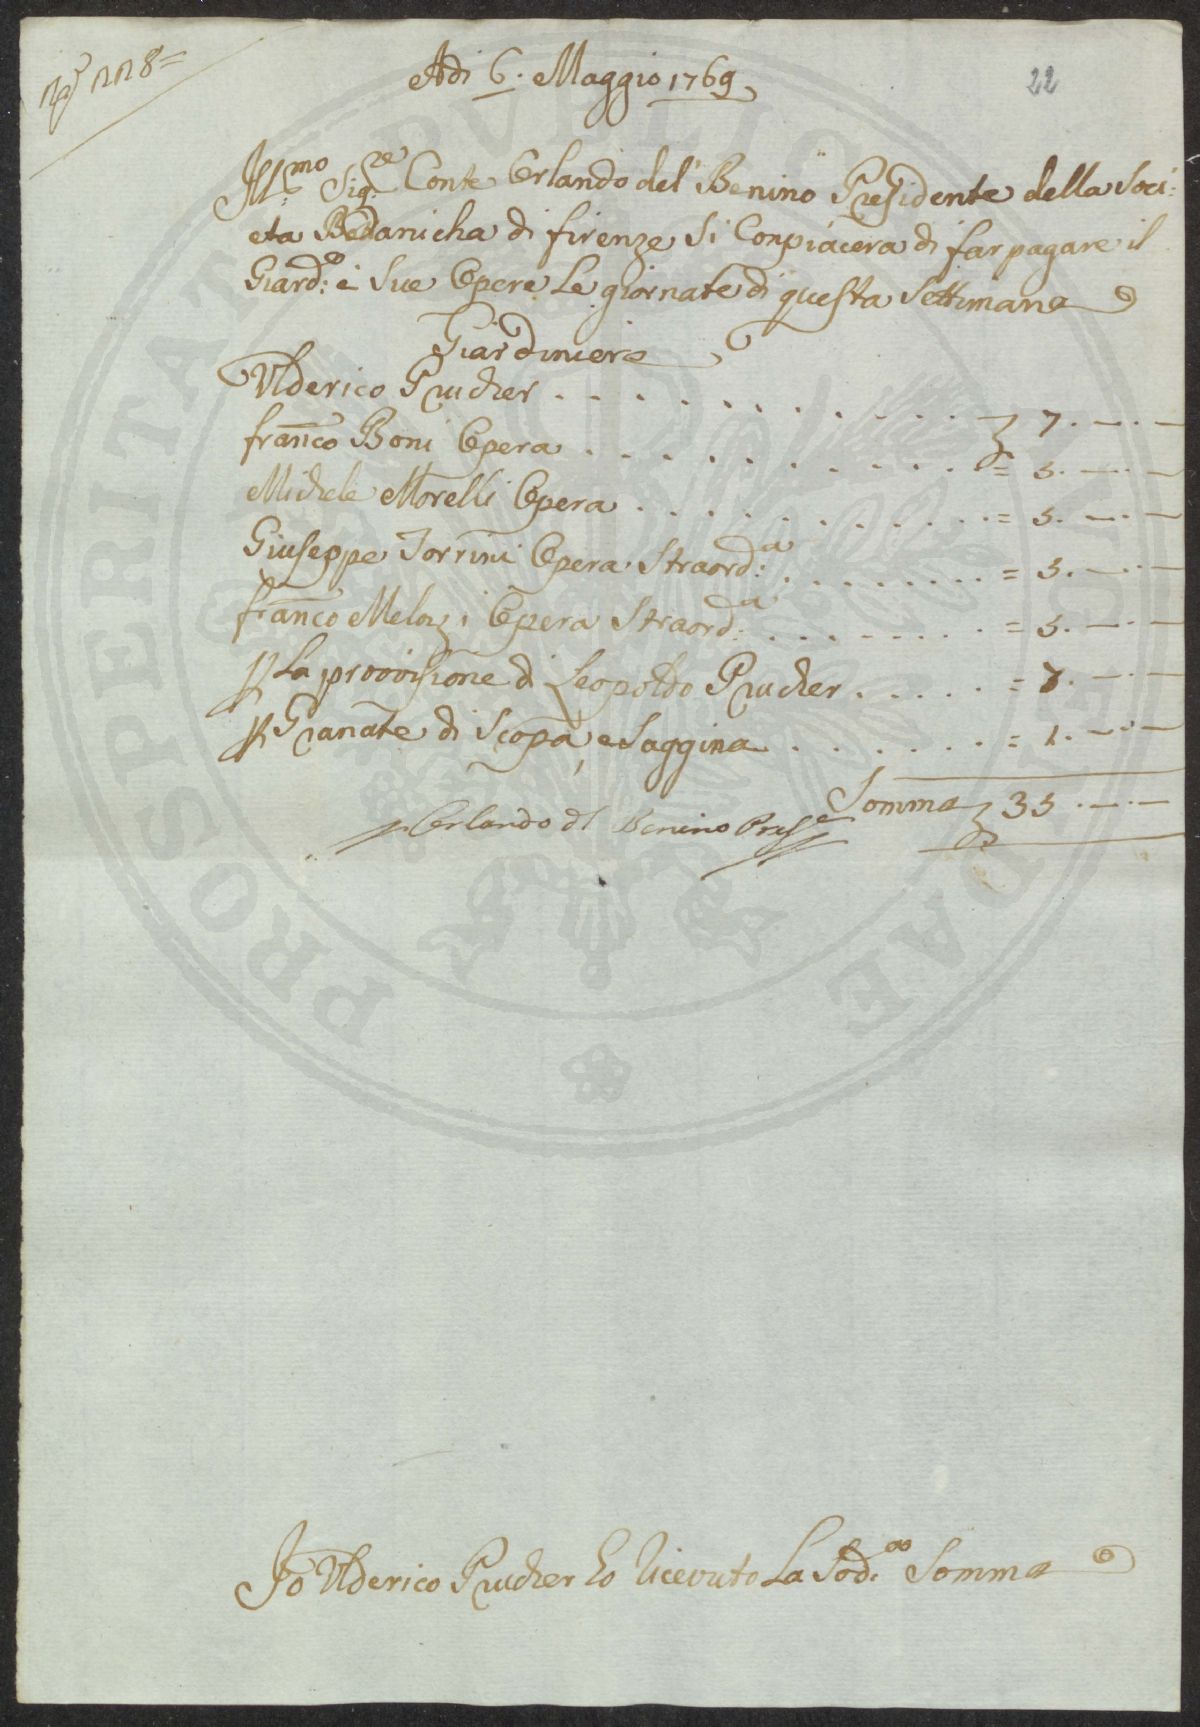 Adi 6. Maggio 1769
22
Ill:mo Sig:re Conte Orlando del Benino Presidente della Soci:
eta Botanicha di firenze si Conpiacera di far pagare il
Giard:o e sue Opere Le giornate di questa Settimana
Giardiniere
Ulderico Prucher . . . . . . . . . . . . . 7. — . —
franco Boni Opera . . . . . . . . . . = 5. — . —
Michele Morelli Opera . . . . . . . . . . = 5. — . —
Giuseppe Torrini Opera Straord:a . . . . . . . . = 5. — . —
franco Melozi Opera Straord:a . . . . . . . . = 5. — . —
p La provvisione di Leopoldo Prucher . . . . . = 7. — . —
p Granate di Scopa, e Saggina . . . . . . . = 1. — . —
Somma 35 . — . —
Orlando del Benino Pres:e
Io Ulderico Prucher ho Ricevuto La Sod:a Somma
PROSPERITATI PVBLICAE AVGENDAE